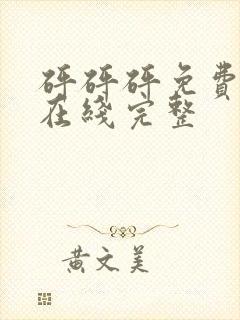 砰砰砰免費
在綫完整
黃文美